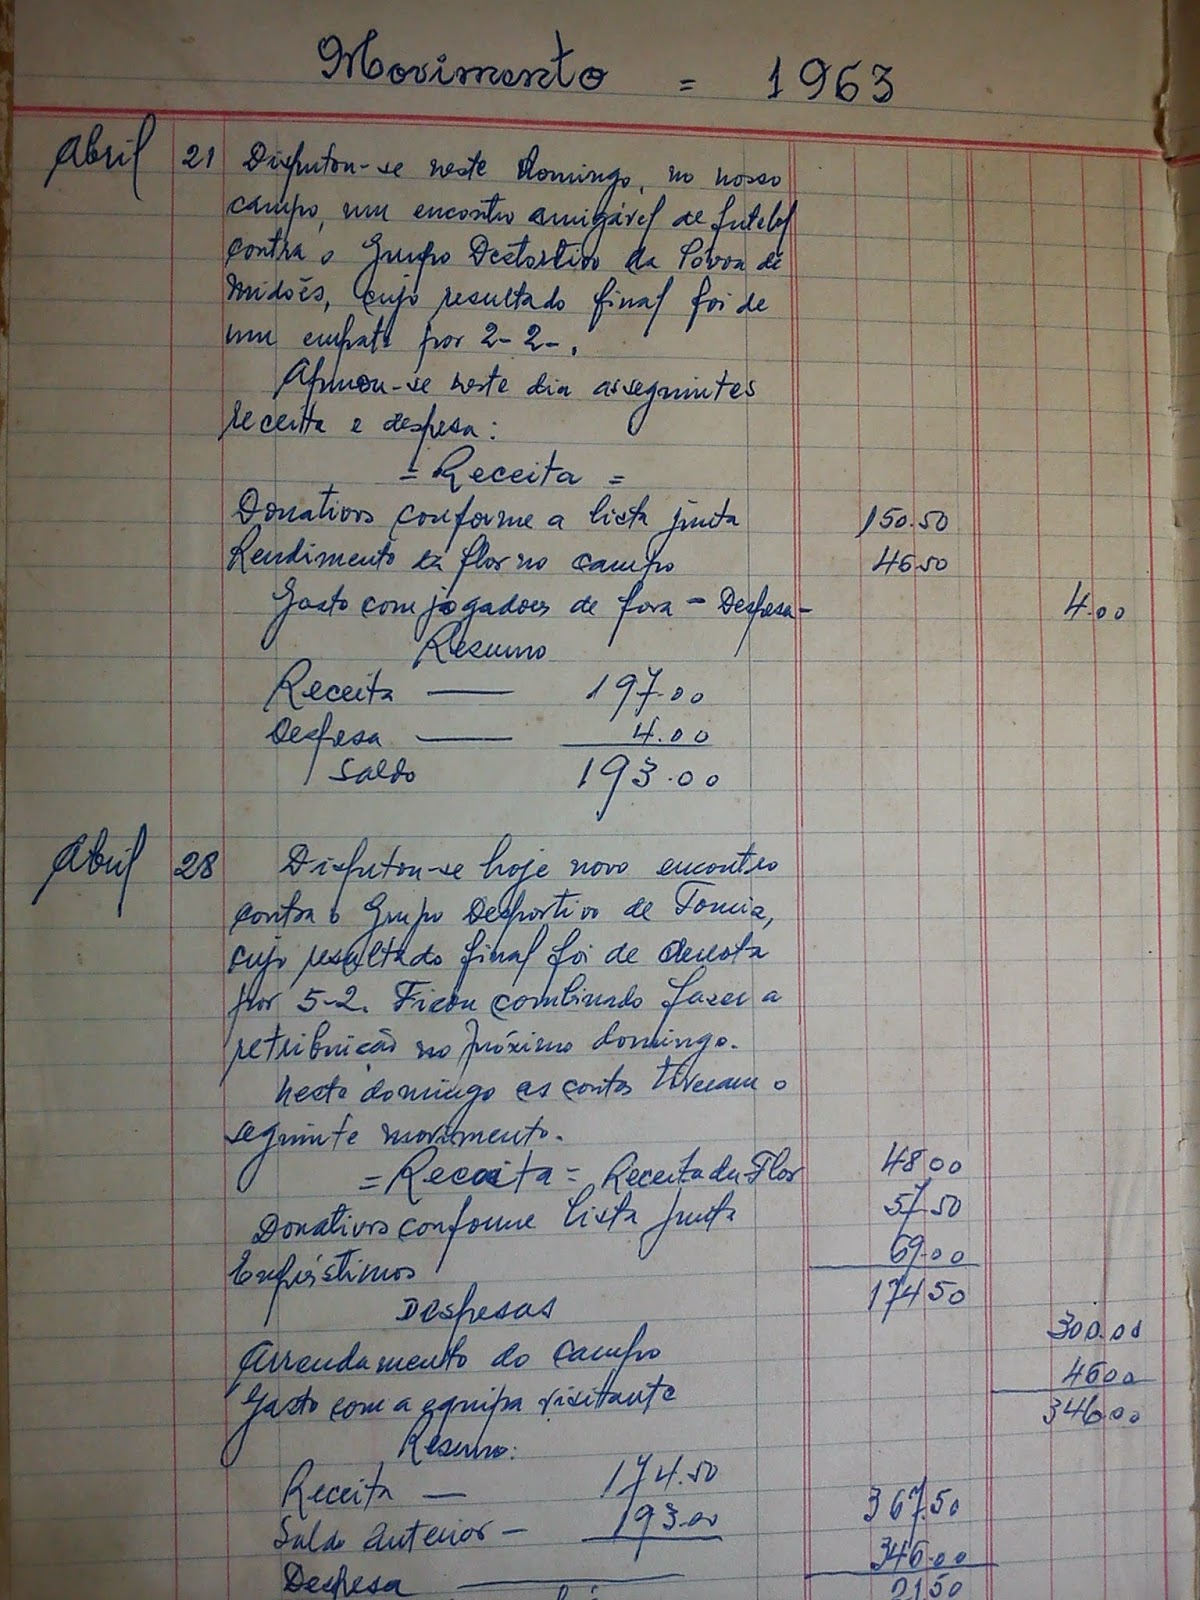 Movimento = 1963
Abril 21 Disputou-se neste Domingo, no nosso
campo, um encontro amigável de futebol
contra o Grupo Destortivo da Póvoa de
Midões, cujo resultado final foi de
um empate por 2-2-.
Apurou-se neste dia as seguintes
receita e despesa:
= Receita =
Donativos conforme a lista junta 150.50
Rendimento da flor no campo 46.50
Gasto com jogadores de fora - Despesa - 4.00
Resumo
Receita — 197.00
Despesa — 4.00
Saldo 193.00
Abril 28 Disputou-se hoje novo encontro
contra o Grupo Desportivo de
cujo resultado final foi de derrota
por 5-2. Ficou combinado fazer a
retribuição no próximo domingo.
Neste domingo as contas tiveram o
seguinte movimento.
= Receita = Receita da Flor 48 00
Donativos conforme lista junta 57.50
Empréstimos 69.00
174 50
Despesas
Arrendamento do campo 300.00
Gasto com a equipa visitante 46 00
346.00
Resumo:
Receita — 174.50
Saldo Anterior — 193.00 367.50
Despesa — 346.00
21 50